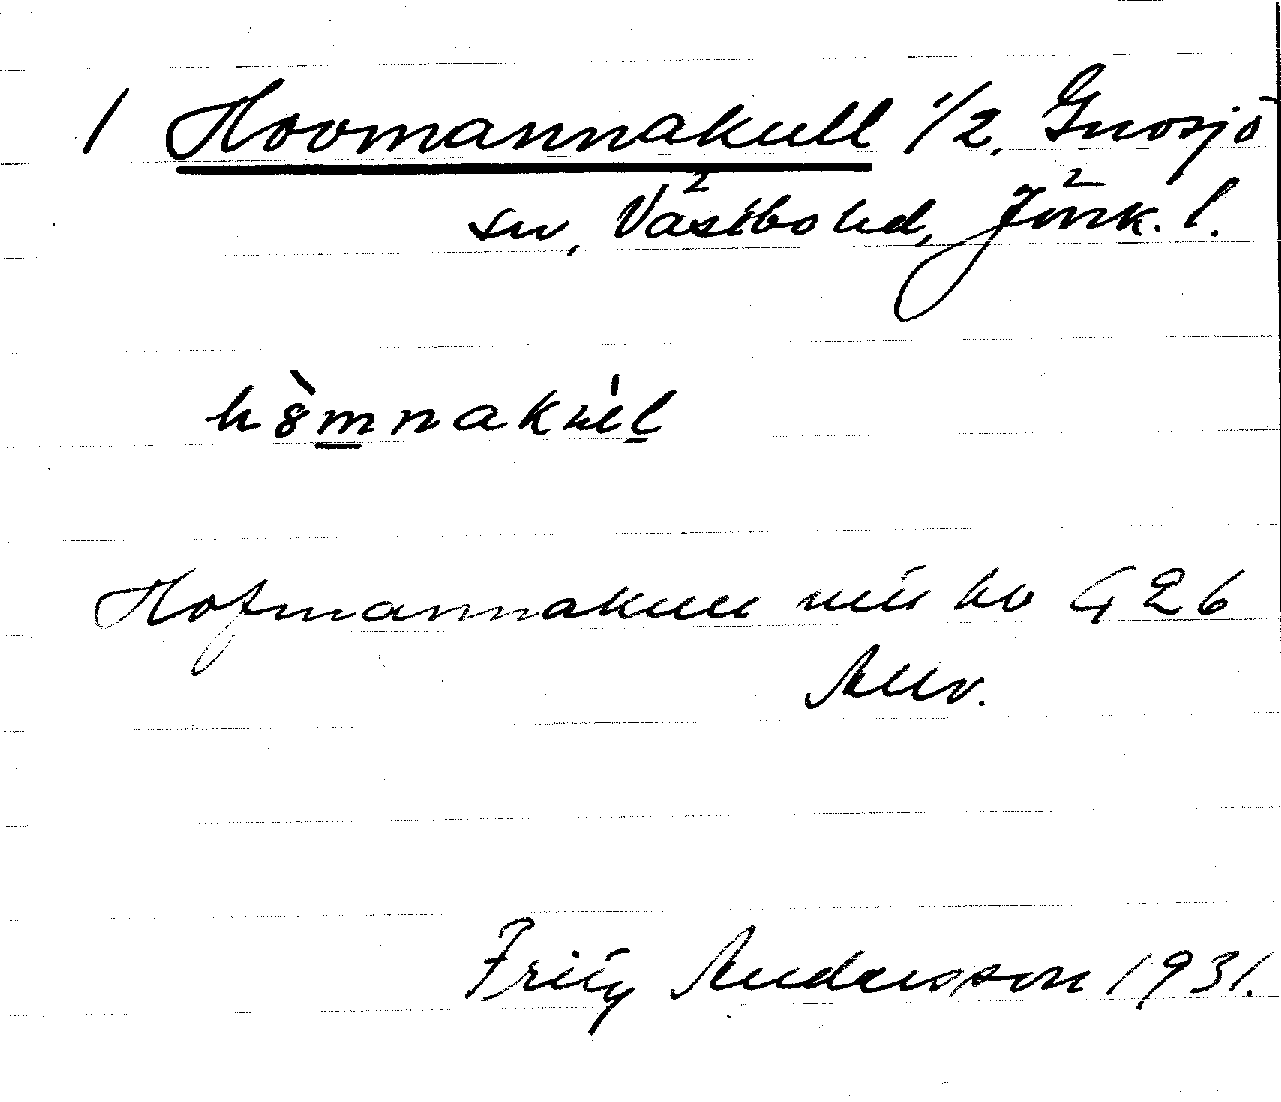 1 Hovmannakull 1/2, Gnosjö
sn, Västbo hd, Jönk. l.
Hofmannakull 426
Allv.
Fritz Andersson 1931.